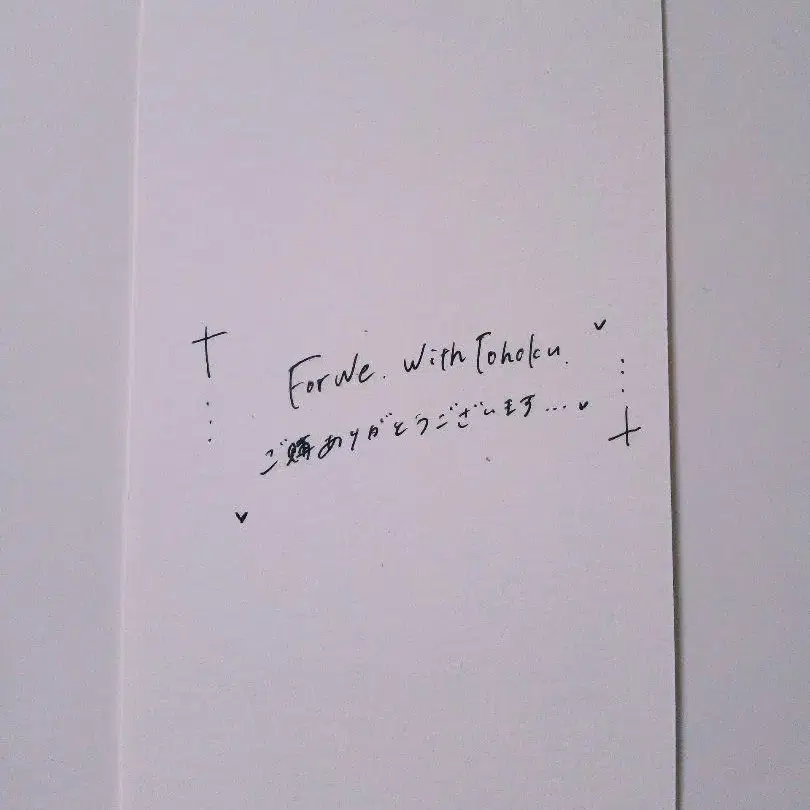 ForWe. With Tohoku.
ご購ありがとうございます...